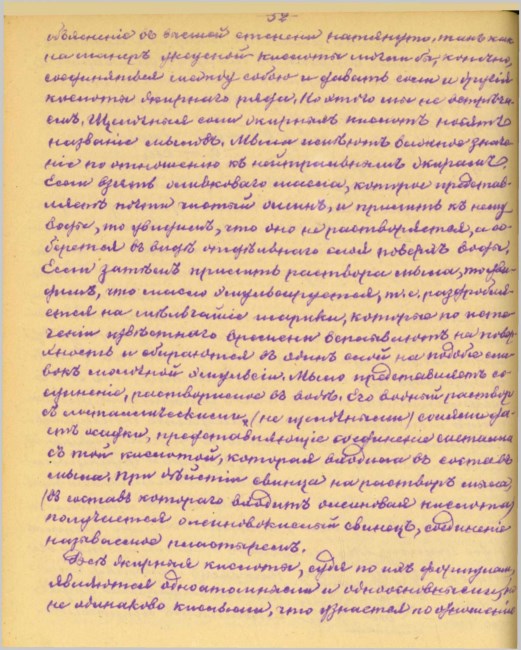 52
объясненіе въ высшей степени натянуто, такъ какъ
на манеръ уксусной кислоты могли бы, конечно,
соединяться между собою и давать соли и другія
кислоты жирнаго ряда. Но этого мы не встрѣча-
емъ. Щелочныя соли жирныхъ кислотъ носятъ
названіе мыловъ. Мыла имѣютъ важное значе-
ніе по отношенію къ нейтральнымъ жирамъ.
Если взять оливковаго масла, которое представ-
ляетъ почти чистый олеинъ, и прилить къ нему
воды, то увидимъ, что оно не растворяется, а со-
берется въ видѣ отдѣльнаго слоя поверхъ воды.
Если затѣмъ прилить раствора мыла, то уви-
димъ, что масло эмульсируется, т.е. раздробля-
ется на мельчайшіе шарики, которые по исте-
ченіи извѣстнаго времени всплываютъ на повер-
хность и собираются въ одинъ слой на подобіе сли-
вокъ молочной эмульсіи. Мыло представляетъ со-
единеніе, растворимое въ водѣ. Его водный растворъ
съ металлическими (не щелочными) солями да-
етъ осадки, представляющіе соединеніе металла
съ той кислотой, которая входила въ составъ
мыла. При дѣйствіи свинца на растворъ мыла
(въ составъ котораго входитъ олеиновая кислота)
получается олеиновокислый свинецъ, соединеніе
называемое пластыремъ.
Всѣ жирныя кислоты, судя по ихъ формуламъ,
являются одноатомными и одноосновными, но
не одинаково кислыми, что узнается по отношенію